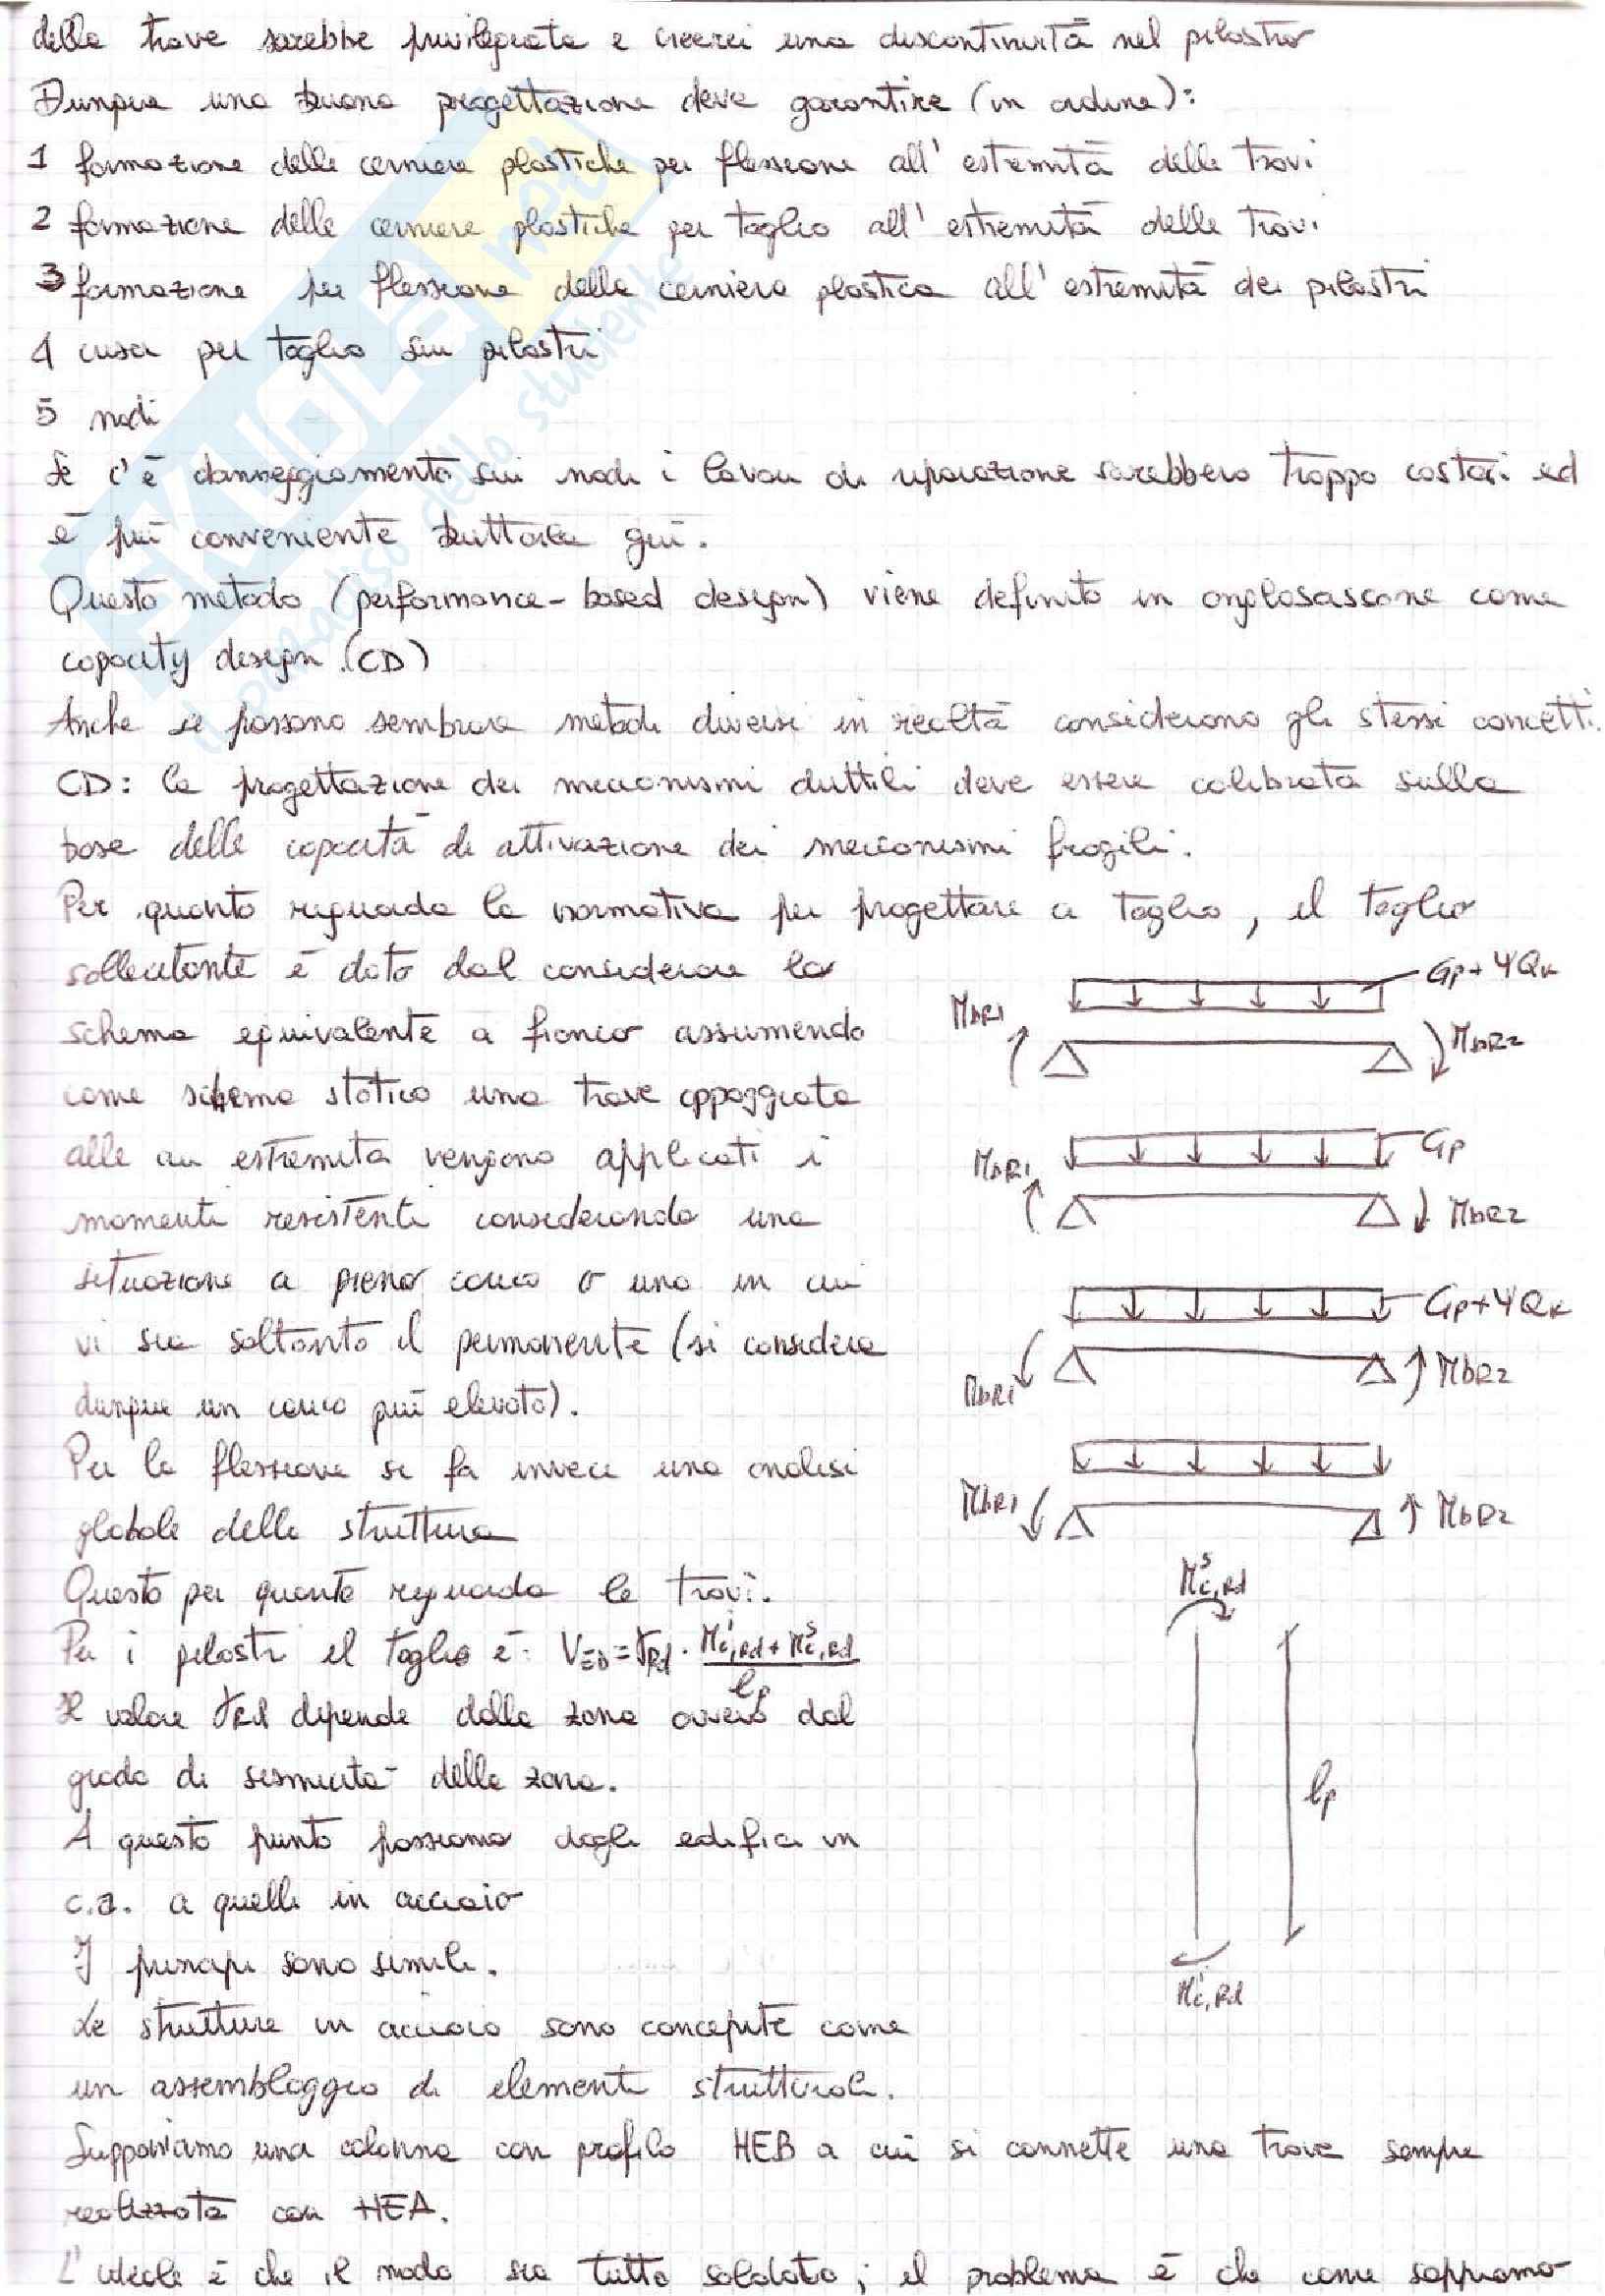 della trave sarebbe privilegiata e creerei una discontinuità nel pilastro
Dunque una buona progettazione deve garantire (in ordine):
1 formazione delle cerniere plastiche per flessione all'estremità delle travi
2 formazione delle cerniere plastiche per taglio all'estremità delle travi
3 formazione per flessione della cerniera plastica all'estremità dei pilastri
4 crisi per taglio sui pilastri
5 nodi
Se c'è danneggiamento sui nodi i lavori di riparazione sarebbero troppo costosi ed
è più conveniente buttarla giù.
Questo metodo (performance-based design) viene definito in anglosassone come
capacity design (CD)
Anche se possono sembrare metodi diversi in realtà considerano gli stessi concetti.
CD: la progettazione dei meccanismi duttili deve essere calibrata sulla
base delle capacità di attivazione dei meccanismi fragili.
Per quanto riguarda la normativa per progettare a taglio, il taglio
sollecitante è dato dal considerare lo
schema equivalente a fianco assumendo
come schema statico una trave appoggiata
alle cui estremità vengono applicati i
momenti resistenti considerando una
situazione a pieno carico o una in cui
vi sia soltanto il permanente (si considera
dunque un carico più elevato).
Per la flessione si fa invece una analisi
globale della struttura
Questo per quanto riguarda le travi.
Per i pilastri il taglio è: V_ED = γ_Rd · (M^i_c,Rd + M^s_c,Rd) / l_p
Il valore γ_Rd dipende dalla zona ovvero dal
grado di sismicità della zona.
A questo punto passiamo dagli edifici in
c.a. a quelli in acciaio
I principi sono simili.
Le strutture in acciaio sono concepite come
un assemblaggio di elementi strutturali.
Supponiamo una colonna con profilo HEB a cui si connette una trave sempre
realizzata con HEA.
L'ideale è che il nodo sia tutto saldato; il problema è che come sappiamo
Gp+ΨQk
MbR1
MbR2
Gp
MbR1
MbR2
Gp+ΨQk
MbR1
MbR2
MbR1
MbR2
M^s_c,Rd
lp
M^i_c,Rd
SKUOLA.net
il paradiso dello studente